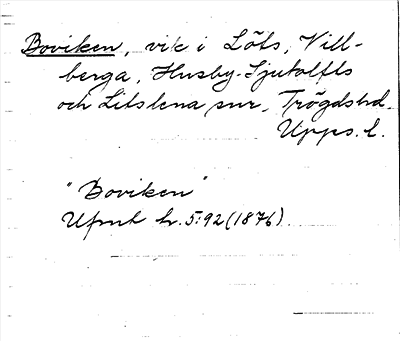 Boviken, vik i Löts, Vill-
berga, Husby-Sjutolfts
och Litslena snr, Trögds hd.
Upps. l.
"Boviken"
Ufmt hr. 5:92 (1876)